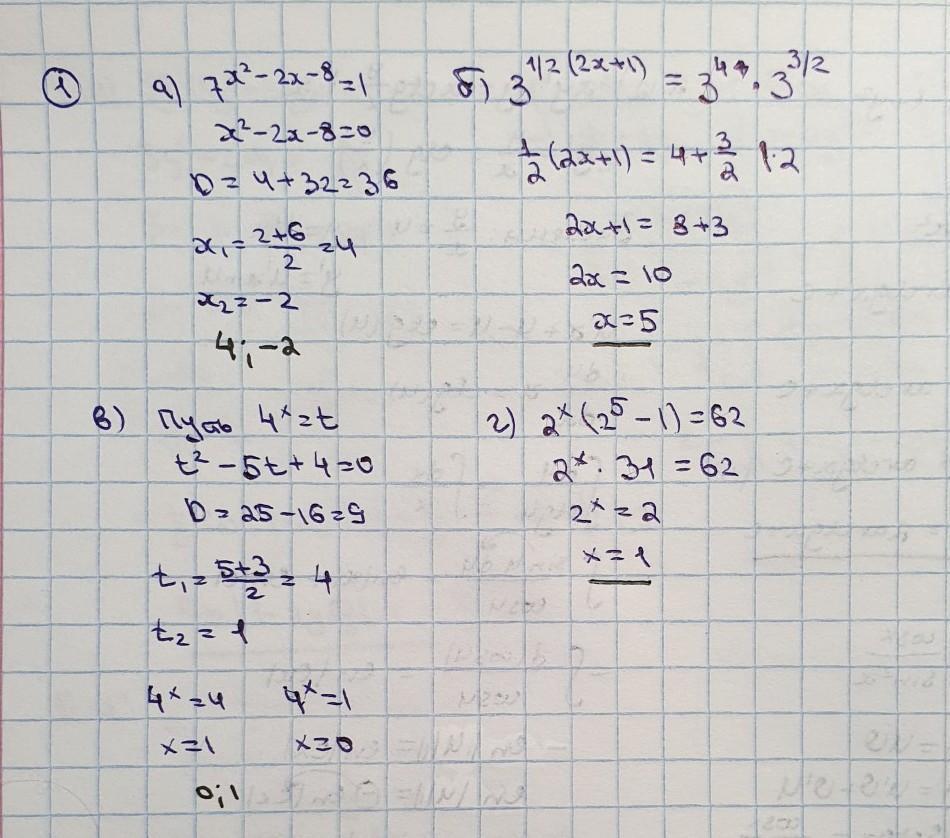 1
а) 7^(x²-2x-8)=1
x²-2x-8=0
D=4+32=36
x₁=(2+6)/2=4
x₂=-2
4;-2
б) 3^(1/2(2x+1)) = 3^4 · 3^(3/2)
1/2(2x+1)=4+3/2 |·2
2x+1=8+3
2x=10
x=5
в) Пусть 4^x=t
t²-5t+4=0
D=25-16=9
t₁=(5+3)/2=4
t₂=1
4^x=4 4^x=1
x=1 x=0
0;1
г) 2^x(2^5-1)=62
2^x·31=62
2^x=2
x=1